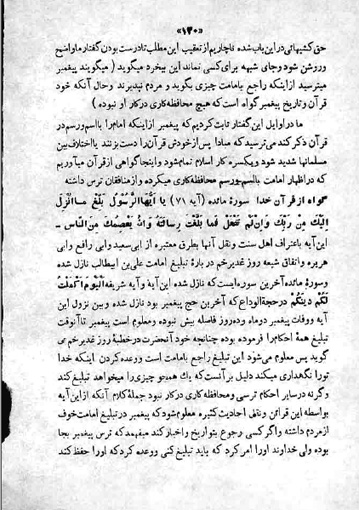 «۱۳۰»
حق کشیهائی در این باب شده ناچاریم از تعقیب این مطلب تا درست بودن گفتار ما واضح
و روشن شود و جای شبهه برای کسی نماند این بیخرد میگوید ( میگویند پیغمبر
میترسید از اینکه راجع بامامت چیزی بگوید و مردم نپذیرند و حال آنکه خود
قرآن و تاریخ پیغمبر گواه است که هیچ محافظه کاری در کار او نبوده )
ما در اوایل این گفتار ثابت کردیم که پیغمبر از اینکه امام را با اسم و رسم در
قرآن ذکر کند میترسید که مبادا پس از خودش قرآن را دست بزنند یا اختلاف بین
مسلمانها شدید شود و یکسره کار اسلام تمام شود و اینجا گواهی از قرآن میآوریم
که در اظهار امامت بااسم و رسم محافظه کاری میکرده و از منافقان ترس داشته
گواه از قرآن خدا سورهٔ مائده (آیه ۷۱) یا أَیُّهَا الرَّسُولُ بَلِّغْ ما أُنْزِلَ
إِلَیْکَ مِنْ رَبِّکَ وَإِنْ لَمْ تَفْعَلْ فَما بَلَّغْتَ رِسالَتَهُ وَاللهُ یَعْصِمُکَ مِنَ النّاسِ -
این آیه باعتراف اهل سنت و نقل آنها بطرق معتبره از ابی سعید و ابی رافع و ابی
هریره و اتفاق شیعه روز غدیر خم در بارهٔ تبلیغ امامت علی بن ابیطالب نازل شده
و سورهٔ مائده آخرین سوره ایست که نازل شده و این آیه و آیه شریفه اَلْیَوْمَ أَکْمَلْتُ
لَکُمْ دینَکُمْ در حجة الوداع که آخرین حج پیغمبر بود نازل شده و بین نزول این
آیه و وفات پیغمبر دو ماه و ده روز فاصله بیش نبوده و معلوم است پیغمبر تا آنوقت
تبلیغ همهٔ احکام را فرموده بوده چنانچه خود آنحضرت در خطبهٔ روز غدیر خم می
گوید پس معلوم می شود این تبلیغ راجع بامامت است و وعده کردن اینکه خدا
تو را نگهداری میکند دلیل بر آنست که یک همچو چیزی را میخواهد تبلیغ کند
و گرنه در سایر احکام ترسی و محافظه کاری در کار نبود جملهٔ کلام آنکه از این آیه
بواسطه این قرائن و نقل احادیث کثیره معلوم شود که پیغمبر در تبلیغ امامت خوف
از مردم داشته و اگر کسی رجوع بتواریخ و اخبار کند میفهمد که ترس پیغمبر بجا
بوده ولی خداوند او را امر کرد که باید تبلیغ کنی و وعده کرد که او را حفظ کند